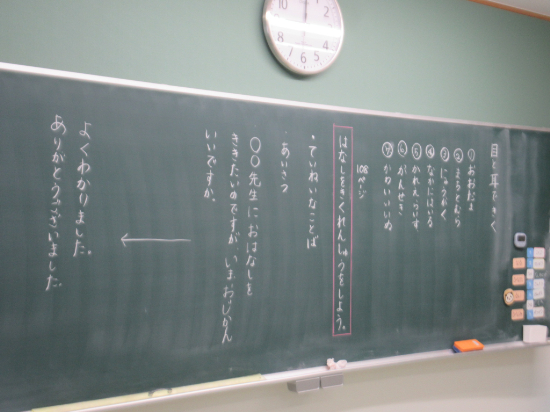 目と耳できく
①おおだま
②まちとむら
③にゅうがく
④なかにはいる
⑤かれたいけす
⑥がんせき
⑦かわいいいぬ
108ページ
はなしをきくれんしゅうをしよう。
・ていねいなことば
・あいさつ
○○先生におはなしを
ききたいのですが、いま、おじかん
いいですか。
よくわかりました。
ありがとうございました。